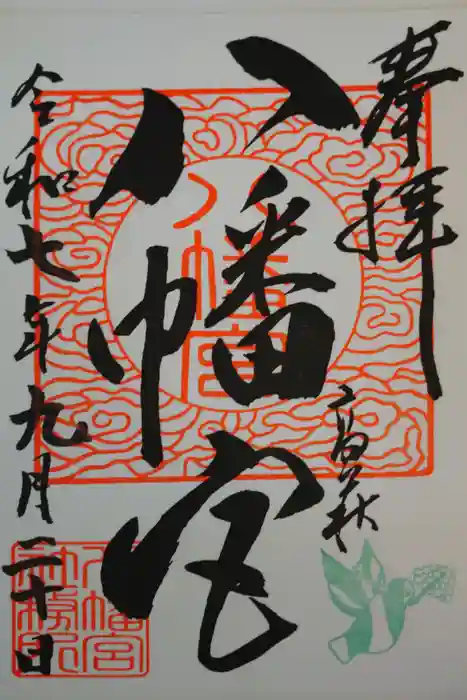 奉拝
高萩
八幡宮
令和七年九月二十日
八幡宮
八幡宮
社務所